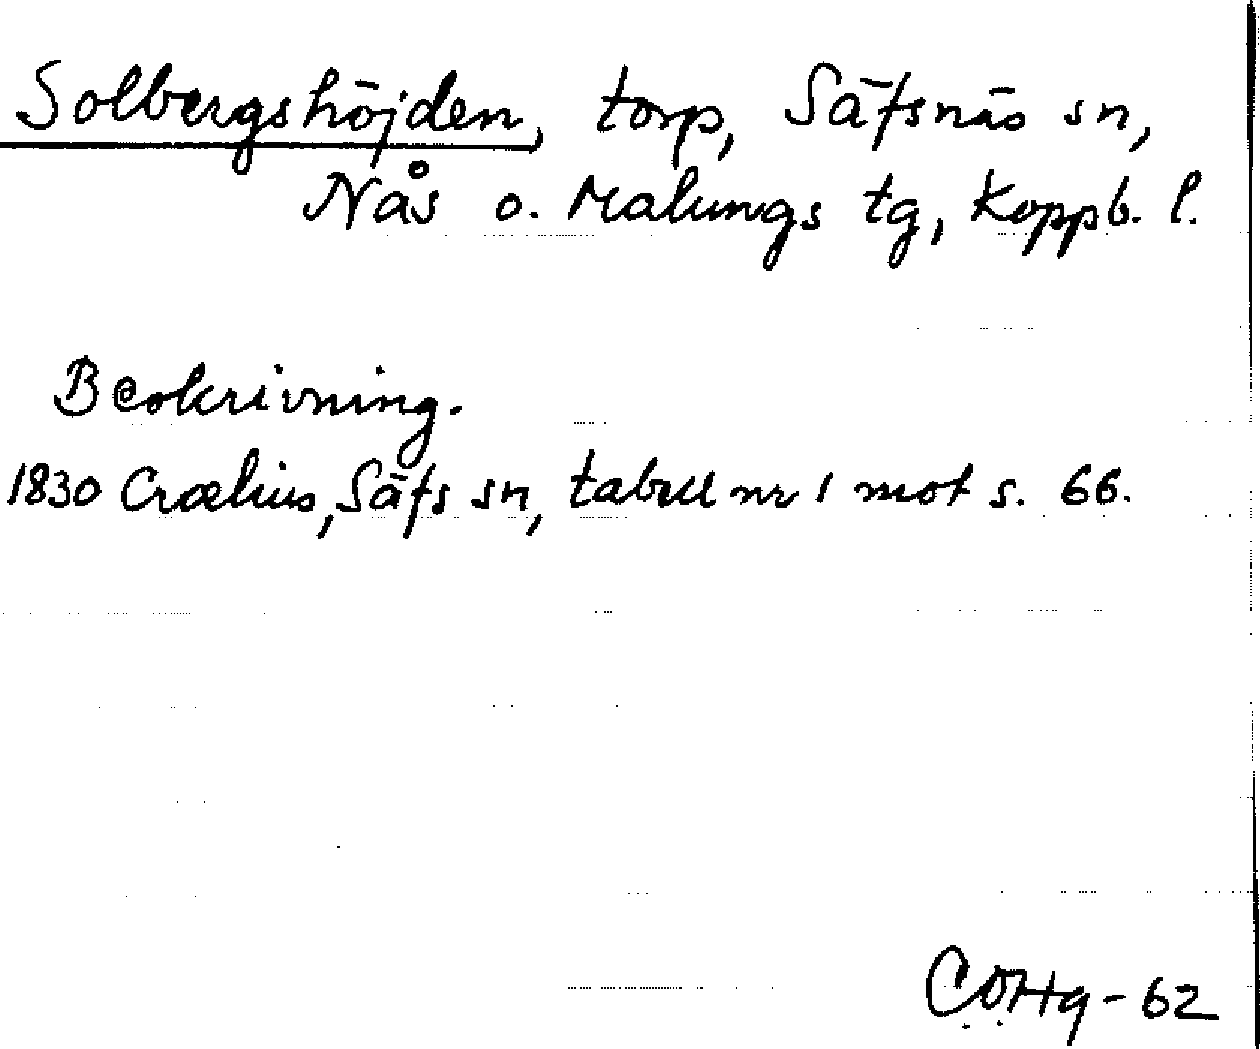 Solbergshöjden, torp, Säfsnäs sn,
Nås o. Malungs tg, Koppb. l.
Beskrivning.
1830 Crælius, Säfs sn, tabell nr 1 mot s. 66.
COHg-62